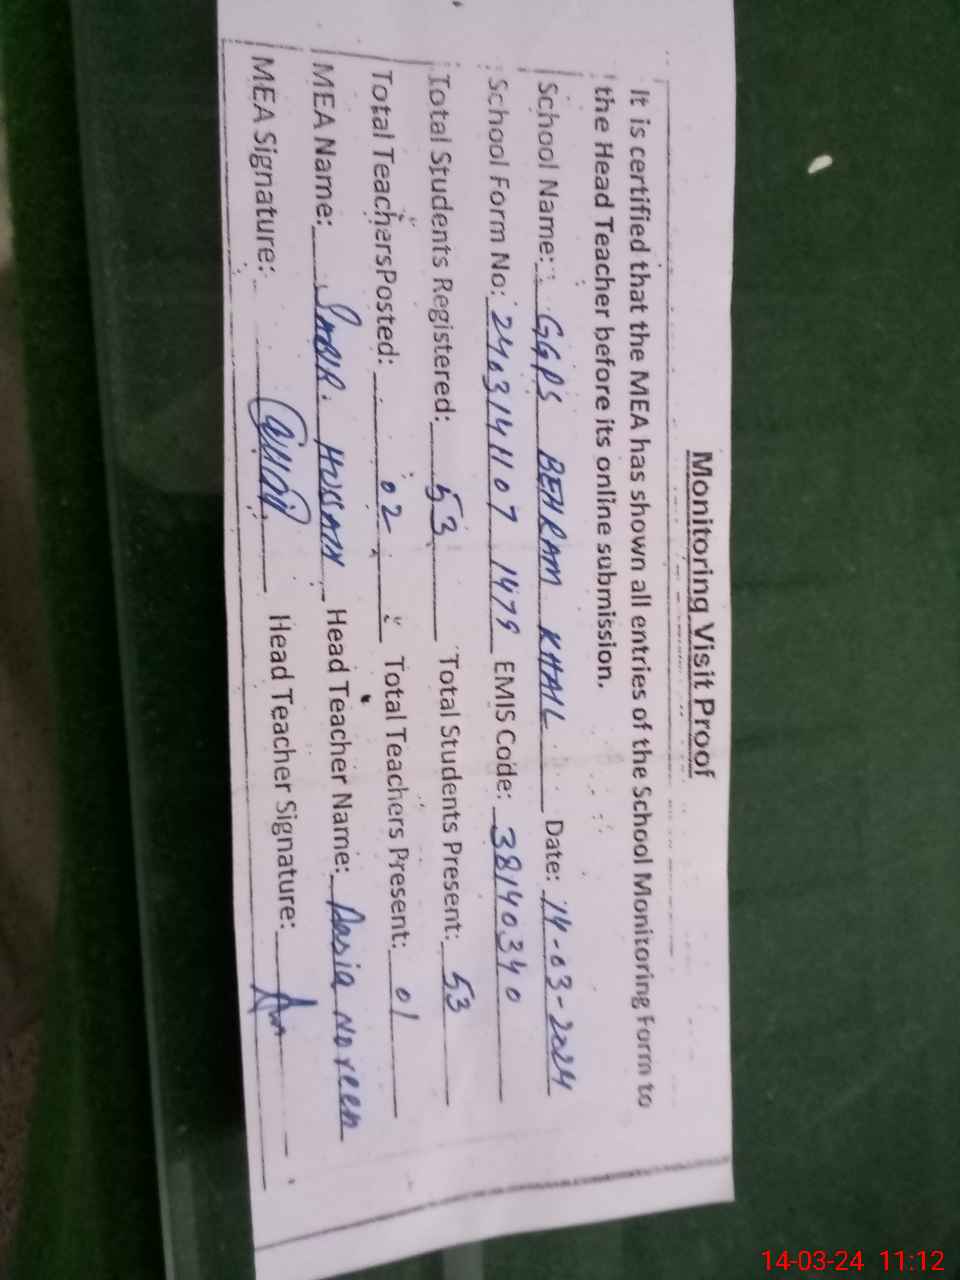 Monitoring Visit Proof
It is certified that the MEA has shown all entries of the School Monitoring Form to
the Head Teacher before its online submission.
School Name: GGPS BEHRAM KHAIL Date: 14-03-2024
School Form No: 240314107 1479 EMIS Code: 38140340
Total Students Registered: 53 Total Students Present: 53
Total TeachersPosted: 02 Total Teachers Present: 01
MEA Name: SABIR HUSSAIN Head Teacher Name: Aasia Noreen
MEA Signature: Head Teacher Signature:
14-03-24 11:12